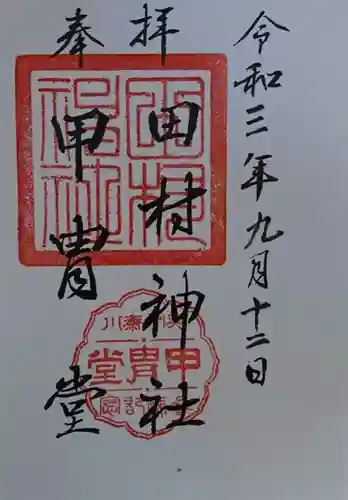 令和三年九月十二日
奉拝
田村神社
甲冑堂
田村神社
奥州斎川
甲冑堂